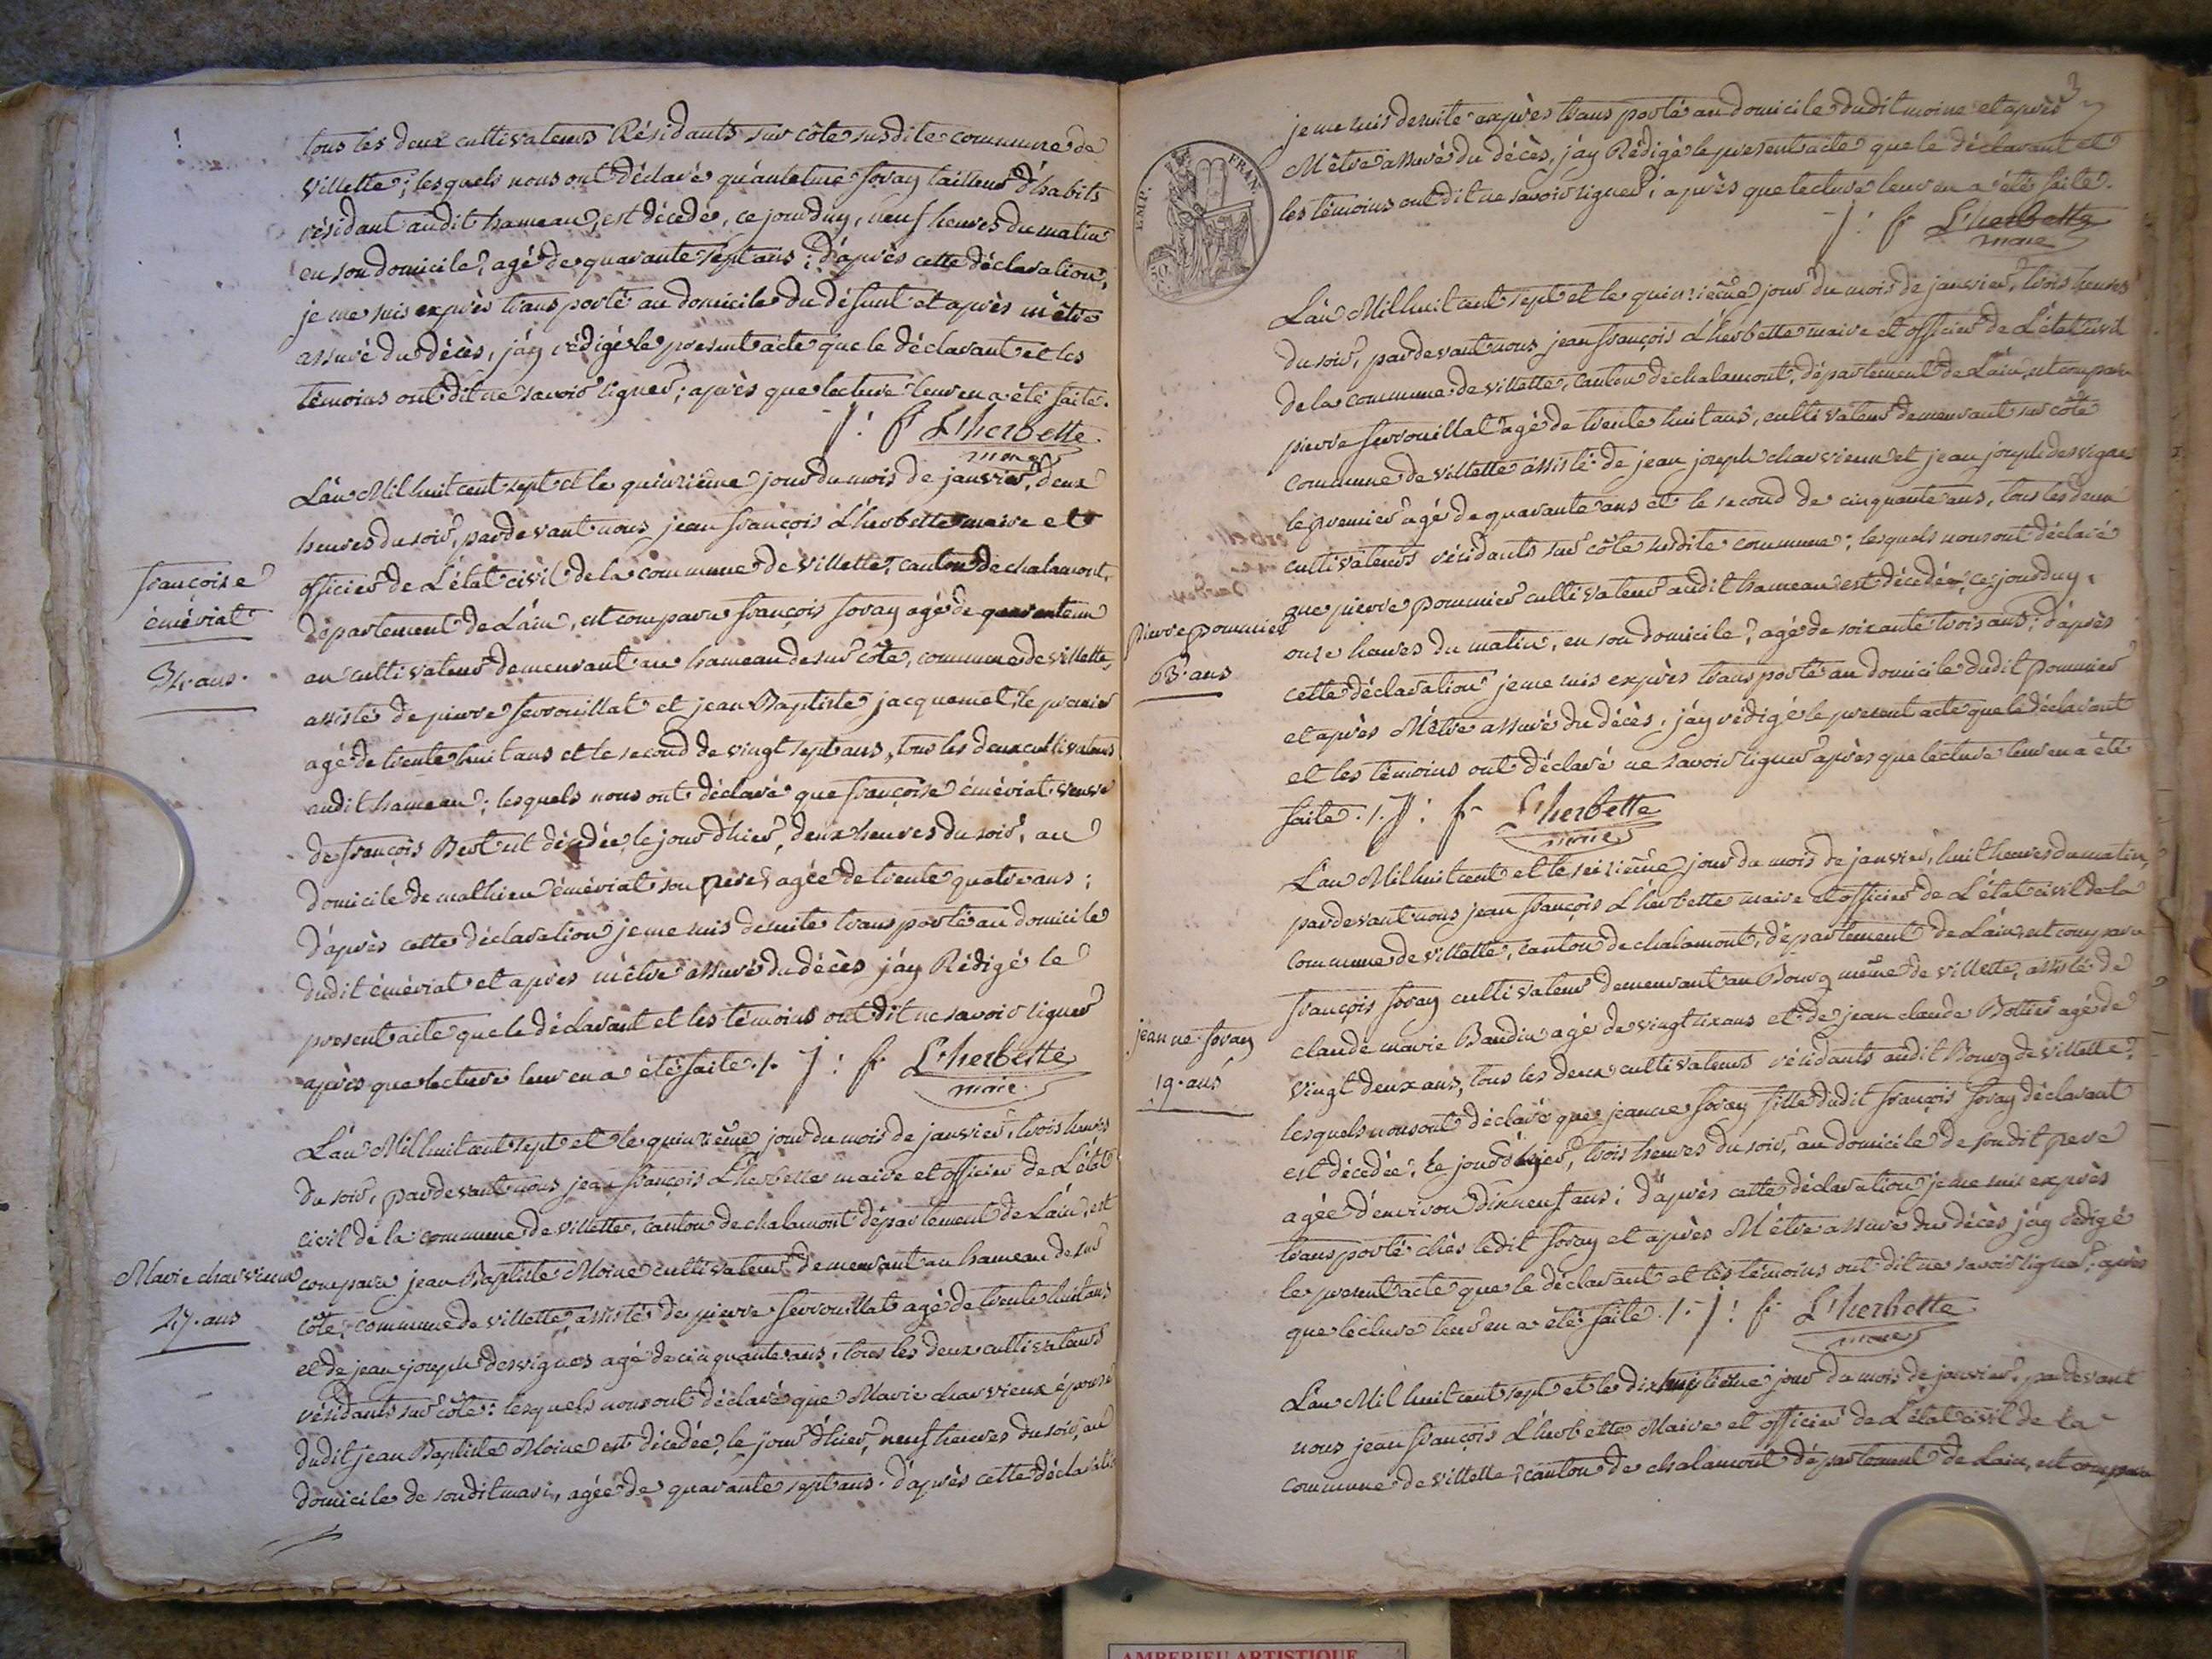 tous les deux cultivateurs Résidants sur côte susdite commune de
villette; lesquels nous ont déclaré qu'antelme foray tailleur d'habits
résidant audit hameau, est décédé, ce jourduy, neuf heures du matin
en son domicile, agé de quarante sept ans; d'après cette déclaration,
je me suis exprès transporté au domicile du défunt et après m'être
assuré du décès, j'ay rédigé le present acte que le déclarant et les
témoins ont dit ne savoir signer; après que lecture leur en a été faite.
J: f L'herbette
maire
L'an Mil huit cent sept et le quinzième jour du mois de janvier, deux
heures du soir, pardevant nous jean françois L'herbette maire et
françoise
officier de L'état civil de la commune de Villette, canton de chalamont,
éméviat
département de L'ain, est comparu françois foray agé de quarente un
34. ans.
an cultivateur demeurant au hameau de sur côte, commune de villette,
assisté de pierre ferrouillat et jean Baptiste jacquemet, le premier
agé de trente huit ans et le second de vingt sept ans, tous les deux cultivateurs
audit hameau; lesquels nous ont déclaré que françoise éméviat veuve
de françois Bert est décédée, le jour d'hier, deux heures du soir, au
domicile de mathieu éméviat son pere, agée de trente quatre ans;
d'après cette déclaration je me suis de suite transporté au domicile
dudit éméviat et après m'être assuré du décès j'ay Rédigé le
present acte que le déclarant et les témoins ont dit ne savoir signer
après que lecture leur en a été faite ./. J: f. L'herbette
maire
L'an Mil huit cent sept et le quinzième jour du mois de janvier, trois heures
du soir, pardevant nous jean françois L'herbette maire et officier de L'état
civil de la commune de villette, canton de chalamont département de L'ain, est
Marie charvieux
comparu jean Baptiste Moine cultivateur demeurant au hameau de sur
27. ans
côte, commune de villette, assisté de pierre ferrouillat agé de trente huit ans
et de jean joseph desvignes agé de cinquante ans, tous les deux cultivateurs
résidants sur côte: lesquels nous ont déclaré que Marie charvieux épouse
dudit jean Baptiste Moine est décédée, le jour d'hier, neuf heures du soir, au
domicile de son dit mari, agée de quarante sept ans. d'après cette déclaration
3
je me suis de suite exprès transporté au domicile dudit moine et après
M'être assuré du décès, j'ay Rédigé le present acte que le déclarant et
les témoins ont dit ne savoir signer; après que lecture leur en a été faite.
EMP. FRAN.
50
J: f L'herbette
maire
L'an Mil huit cent sept et le quinzième jour du mois de janvier, trois heures
du soir, pardevant nous jean françois L'herbette maire et officier de L'état civil
de la commune de villette, canton de chalamont, département de L'ain, est comparu
pierre ferrouillat agé de trente huit ans, cultivateur demeurant sur côte
commune de villette assisté de jean joseph charvieux et jean joseph desvignes
le premier agé de quarante ans et le second de cinquante ans, tous les deux
cultivateurs résidants sur côte susdite commune; lesquels nous ont déclaré
que pierre pommier cultivateur audit hameau est décédé, ce jourduy,
pierre pommier
onze heures du matin, en son domicile, agé de soixante trois ans; d'après
63. ans
cette déclaration je me suis exprès transporté au domicile dudit pommier
et après M'être assuré du décès, j'ay rédigé le present acte que le déclarant
et les témoins ont déclaré ne savoir signer après que lecture leur en a été
faite ./. J: f- L'herbette
maire
L'an Mil huit cent et le seizième jour du mois de janvier, huit heures du matin,
pardevant nous jean françois L'herbette maire et officier de L'état civil de la
commune de villette, canton de chalamont, département de L'ain, est comparu
françois foray cultivateur demeurant au Bourg même de villette, assisté de
jeanne foray
claude marie Baudin agé de vingt six ans et de jean claude Bottier agé de
19. ans
vingt deux ans, tous les deux cultivateurs résidants audit Bourg de villette,
lesquels nous ont déclaré que jeanne foray fille dudit françois foray déclarant
est décédée, le jour d'hier, trois heures du soir, au domicile de son dit pere
agée d'environ dixneuf ans; d'après cette déclaration je me suis exprès
transporté chès ledit foray et après M'être assuré du décès j'ay rédigé
le present acte que le déclarant et les témoins ont dit ne savoir signer; après
que lecture leur en a été faite ./. J: f- L'herbette
maire
L'an Mil huit cent sept et le dixhuitième jour du mois de janvier, pardevant
nous jean françois L'herbette Maire et officier de L'état civil de la
commune de villette, canton de chalamont département de Lain, est comparu
AMBERIEU ARTISTIQUE